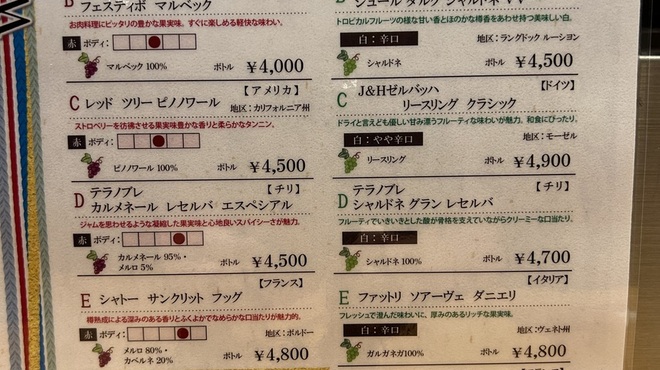 B
フェスティボ マルベック
お肉料理にピッタリの豊かな果実味。すぐに楽しめる軽快な味わい。
赤 ボディ：
マルベック 100%
ボトル ¥4,000
【アメリカ】
C レッド ツリー ピノノワール
地区：カリフォルニア州
ストロベリーを彷彿させる果実味豊かな香りと柔らかなタンニン。
赤 ボディ：
ピノノワール 100%
ボトル ¥4,500
【チリ】
D テラノブレ
カルメネール レセルバ エスペシアル
ジャムを思わせるような凝縮した果実味と心地良いスパイシーさが魅力。
赤 ボディ：
カルメネール 95%・
メルロ 5%
ボトル ¥4,500
【フランス】
E シャトー サンクリット フッグ
樽熟成による深みのある香りとふくよかでなめらかな口当たりが魅力的。
赤 ボディ：
地区：ボルドー
メルロ 80%・
カベルネ 20%
ボトル ¥4,800
トロピカルフルーツの様な甘い香とほのかな樽香をあわせ持つ美味しい白。
白：辛口
地区：ラングドック ルーション
シャルドネ
ボトル ¥4,500
【ドイツ】
C J&Hゼルバッハ
リースリング クラシック
ドライと言えども優しい甘み漂うフルーティな味わいが魅力。和食にぴったり。
白：やや辛口
地区：モーゼル
リースリング
ボトル ¥4,900
【チリ】
D テラノブレ
シャルドネ グラン レセルバ
フルーティでいきいきとした酸が骨格を支えていながらクリーミーな口当たり。
白：辛口
シャルドネ 100%
ボトル ¥4,700
【イタリア】
E ファットリ ソアーヴェ ダニエリ
フレッシュで澄んだ味わいに、厚みのあるリッチな果実味。
白：辛口
地区：ヴェネト州
ガルガネガ100%
ボトル ¥4,800